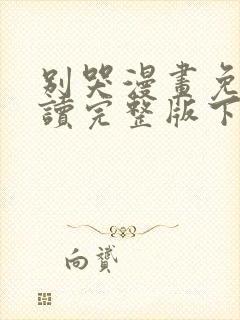 別哭漫畫免
讀完整版下
向贇